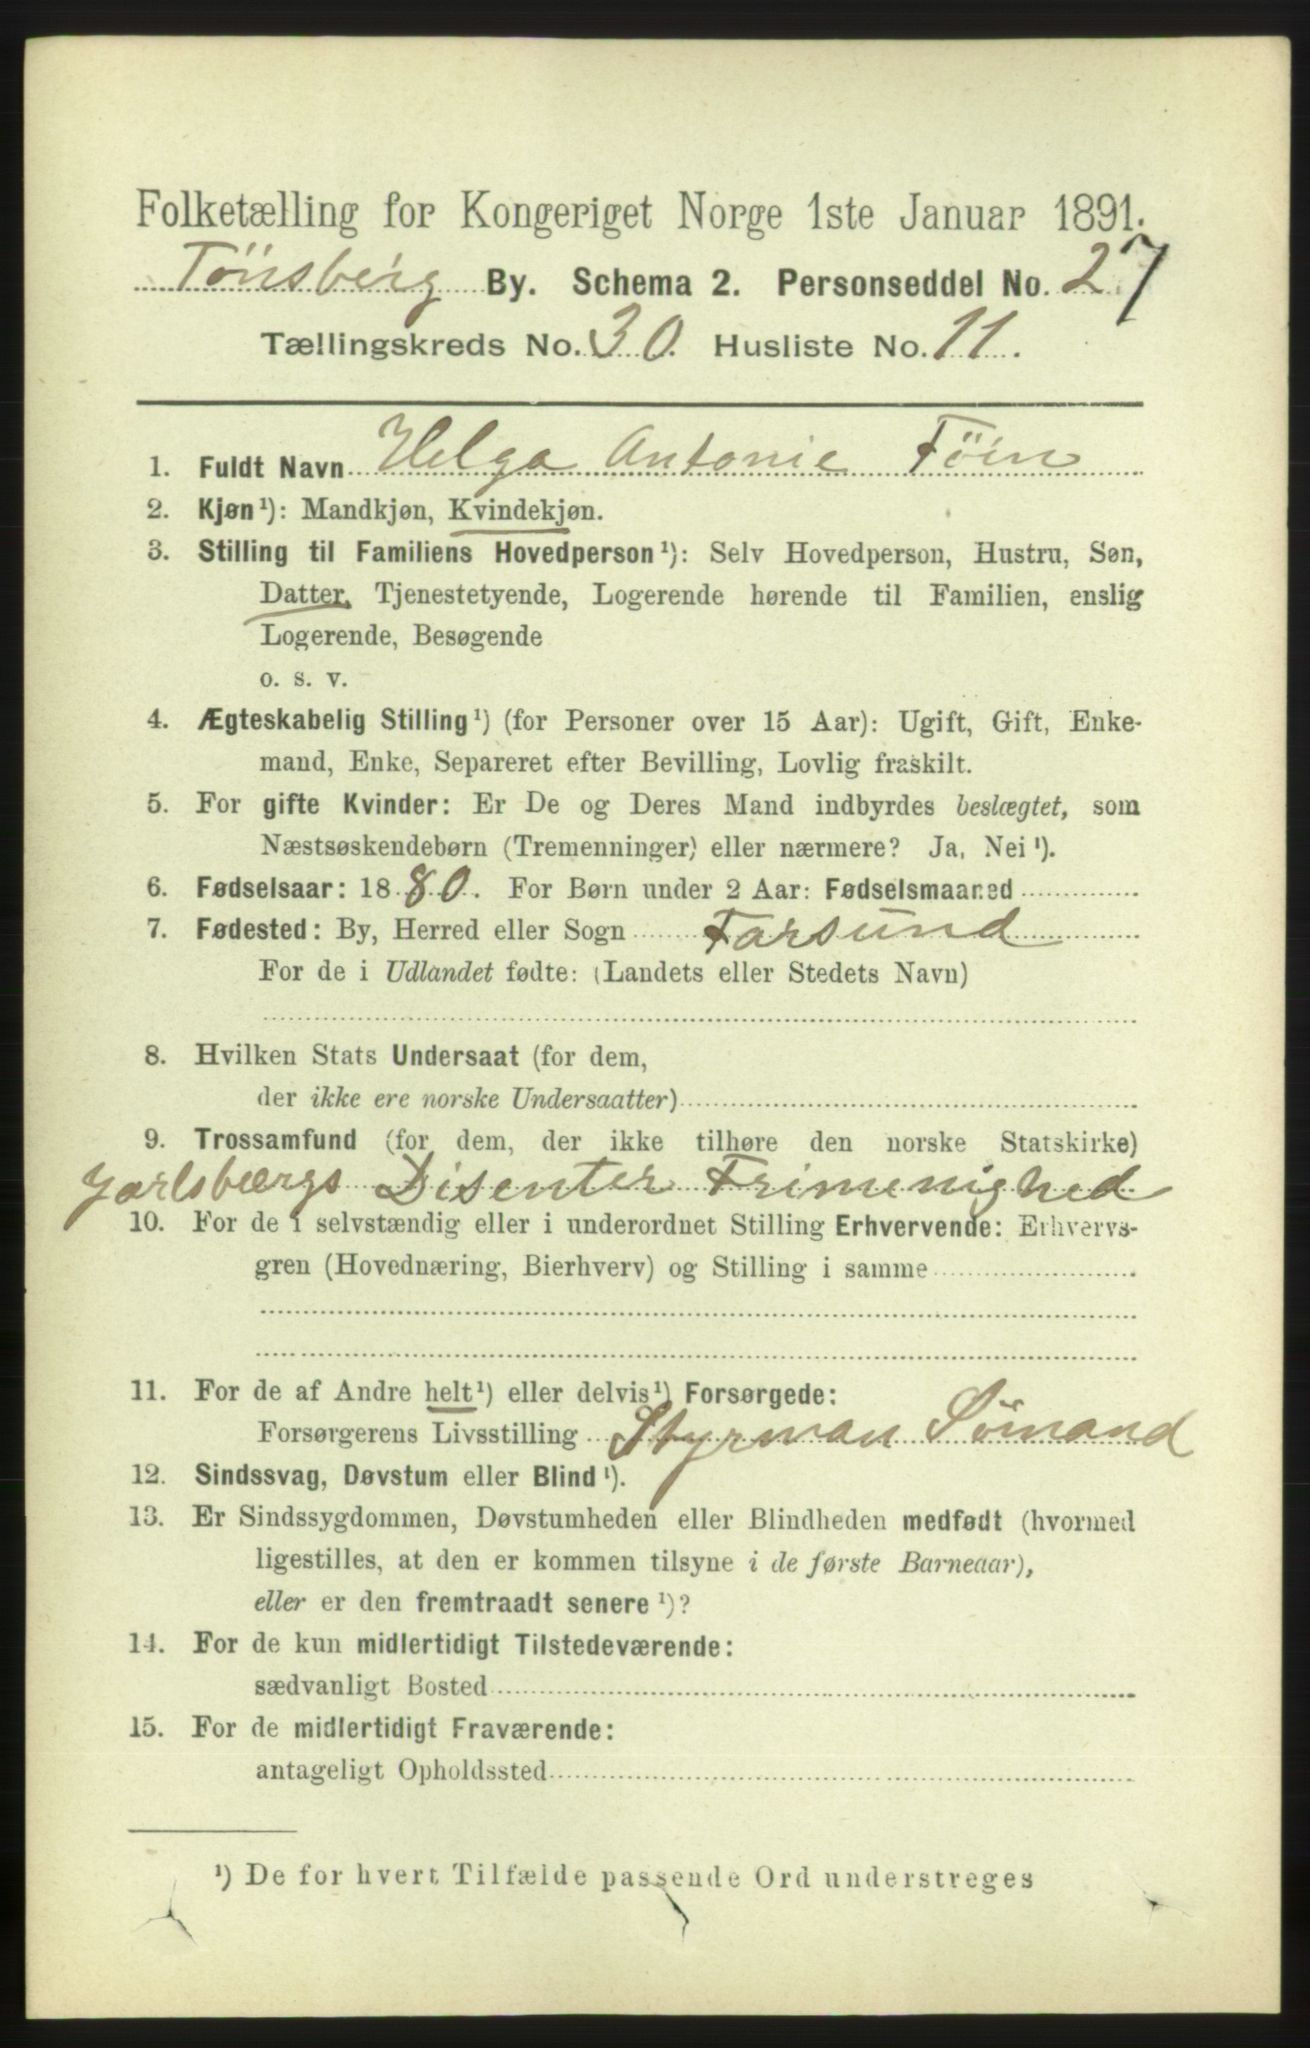 Folketælling for Kongeriget Norge 1ste Januar 1891.
Tönsberg By. Schema 2. Personseddel No. 27
Tællingskreds No. 30. Husliste No. 11.
1. Fuldt Navn Helga Antonie Föin
2. Kjøn ¹): Mandkjøn, Kvindekjøn.
3. Stilling til Familiens Hovedperson ¹): Selv Hovedperson, Hustru, Søn,
Datter, Tjenestetyende, Logerende hørende til Familien, enslig
Logerende, Besøgende
o. s. v.
4. Ægteskabelig Stilling ¹) (for Personer over 15 Aar): Ugift, Gift, Enke-
mand, Enke, Separeret efter Bevilling, Lovlig fraskilt.
5. For gifte Kvinder: Er De og Deres Mand indbyrdes beslægtet, som
Næstsøskendebørn (Tremenninger) eller nærmere? Ja, Nei ¹).
6. Fødselsaar: 1880. For Børn under 2 Aar: Fødselsmaaned
7. Fødested: By, Herred eller Sogn Farsund
For de i Udlandet fødte: (Landets eller Stedets Navn)
8. Hvilken Stats Undersaat (for dem,
der ikke ere norske Undersaatter)
9. Trossamfund (for dem, der ikke tilhøre den norske Statskirke)
Jarlsbærgs Disenter Frimenighed
10. For de i selvstændig eller i underordnet Stilling Erhvervende: Erhvervs-
gren (Hovednæring, Bierhverv) og Stilling i samme
11. For de af Andre helt ¹) eller delvis ¹) Forsørgede:
Forsørgerens Livsstilling Styrman Sömand
12. Sindssvag, Døvstum eller Blind ¹).
13. Er Sindssygdommen, Døvstumheden eller Blindheden medfødt (hvormed
ligestilles, at den er kommen tilsyne i de første Barneaar),
eller er den fremtraadt senere ¹)?
14. For de kun midlertidigt Tilstedeværende:
sædvanligt Bosted
15. For de midlertidigt Fraværende:
antageligt Opholdssted
¹) De for hvert Tilfælde passende Ord understreges